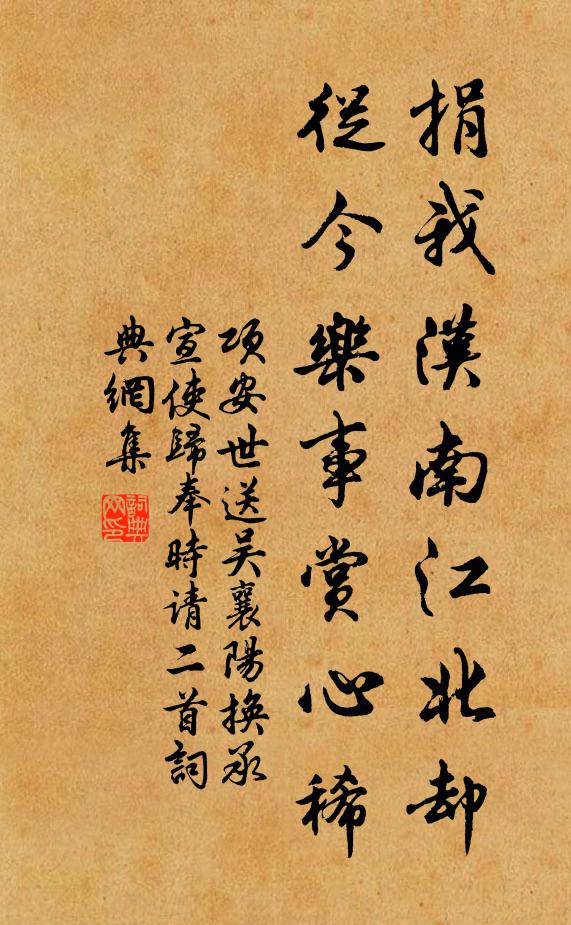 捐我漢南江北却
從今樂事賞心稀
項安世送吴襄陽換承
宣使歸奉時请二首詞
典網集
詞典網印